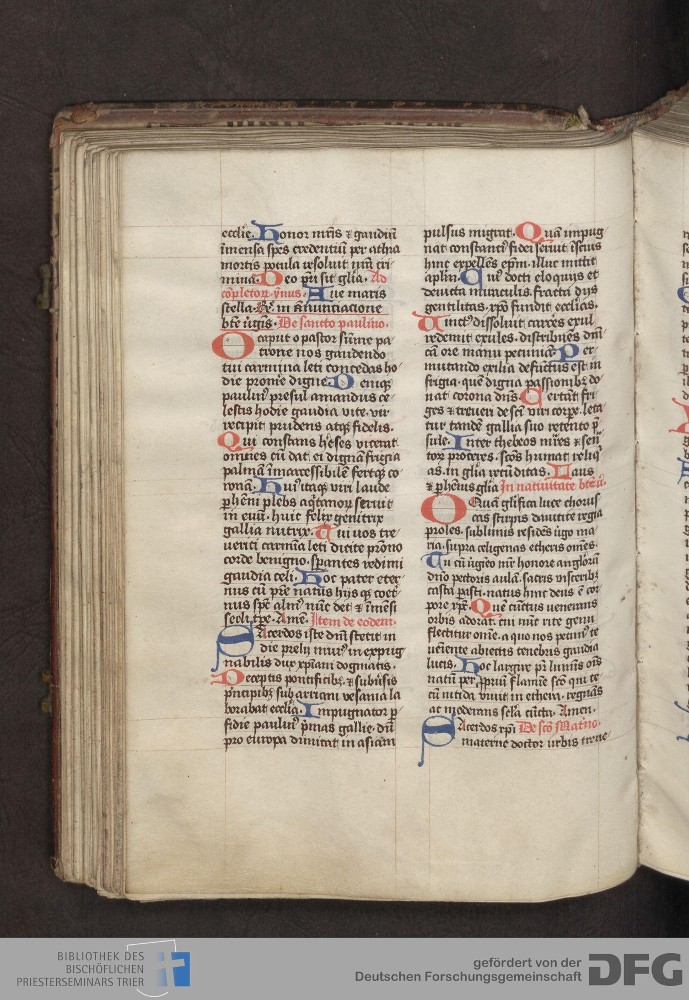 ecclie. Honor mr̄is ⁊ gaudiū
īmensa spes credentiū per atha
mortis pocula resoluit nr̄a cri
mina. Deo pr̄i sit glīa. Ad
cōpletor. ymnus. Aue maris
stella. in Annunciacione
bt̄e ūgis. De sancto paulino.
O caput o pastor sūme pa
trone nos gaudendo
tui carmina leti concedas ho
die promē digne. Denuqꝫ
paulin⁹ presul amandus ce
lestis hodie gaudia vite. vir
recipit prudens atqꝫ fidelis.
Qui constans heses vicerat
omnes cū dat ei dignā frigia
palmā īmarcessibilē fertqꝫ co
ronā. Hui⁹ itaqꝫ viri laude
phēni plebs aqͥtanoꝝ seruit
in euū. huic felix genitrix
gallia nutrix. Qui uos tre
ueriti carmīna leti dicite prōno
corde benigno. spantes redimi
gaudia celi. Hoc pater eter
nus cū pr̄e natus hijsqꝫ coet
nus spē alm⁹ nūc det ⁊ īmēsi
secli xp̄e. Amē. Item de eodem.
Sacerdos iste dnī stetit in
die prelij mur⁹ in expug
nabilis dux xp̄iani dogmatis.
Deceptis pontificibꝫ. ⁊ subūsis
pͥncipibꝫ sub arriani vesania la
borabat ecclīa. Impugnator ꝑ
fidie paulin⁹ pͥmas gallie. dū
pro europa dimicat in asiam
pulsus migrat. Quā impug
nat constanci fidei seruit īscius
hinc expellēs ep̄m. illuc mittit
aplm̄. Cui⁹ docti eloquijs et
deuicta miraculis. fracti dijs
gentilitas. xp̄o fundit ecclīas.
Vinct⁹ dissoluit carceres exul
redemit exules. distribuēs dīnī
cā ore manu pecuniā. Per
mutando exilia defūctus est in
frigia. quē digna passionibꝫ do
nat corona dnī. Certāt fri
ges ⁊ treueri de sc̄i viri corꝑe. leta
tur tandē gallia suo retento p̄
sule. Inter thebeos mr̄es ⁊ senī
toꝝ proceres. sc̄os humat reliqͥ
as. in glīa petūditas. Laus
⁊ phēnis glīa In natiuitate bt̄e ū.
O Quā glīfica luce chorus
cas stirpis dauitice regia
proles. sublimis resides ūgo ma
ria. supra celigenas etheris oms̄.
Tu cū ūgīeo mr̄ honore angloꝝ
dnō pectoris aulā. sacris visceribꝫ
casta pasti. natus hinc deus ē cor
pore xp̄e. Que cūctus uenerans
orbis adorat. cui nūc rite genu
flectitur om̄e. a quo nos petim⁹ te
ueniente abiectis tenebris gaudia
lucis. Hoc largire pr̄ luminis oīs
natū per ꝓpriū flamine sc̄o qui te
cū nitida viuit in ethera. regnās
ac moderans secla cūcta. Amen.
Sacerdos xp̄i De sc̄o Mat̄no.
materne doctor urbis treue
BIBLIOTHEK DES
BISCHÖFLICHEN
PRIESTERSEMINARS TRIER
gefördert von der
Deutschen Forschungsgemeinschaft
DFG